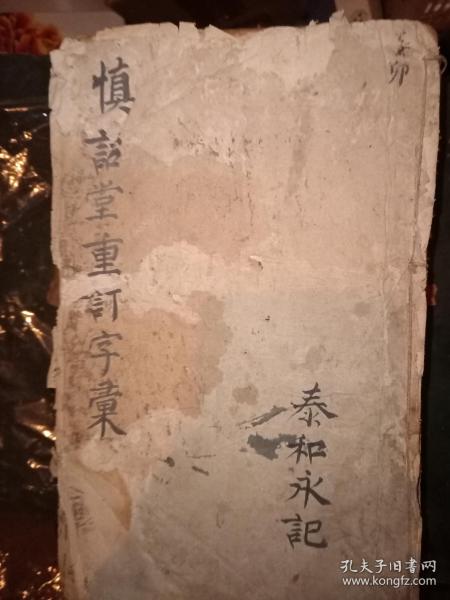 慎詒堂重訂字彙
泰和永記
癸卯
孔夫子旧书网
www.kongfz.com